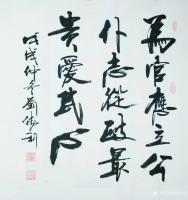 為官應立公
仆志從政最
貴愛民心
戊戌仲冬劉偉